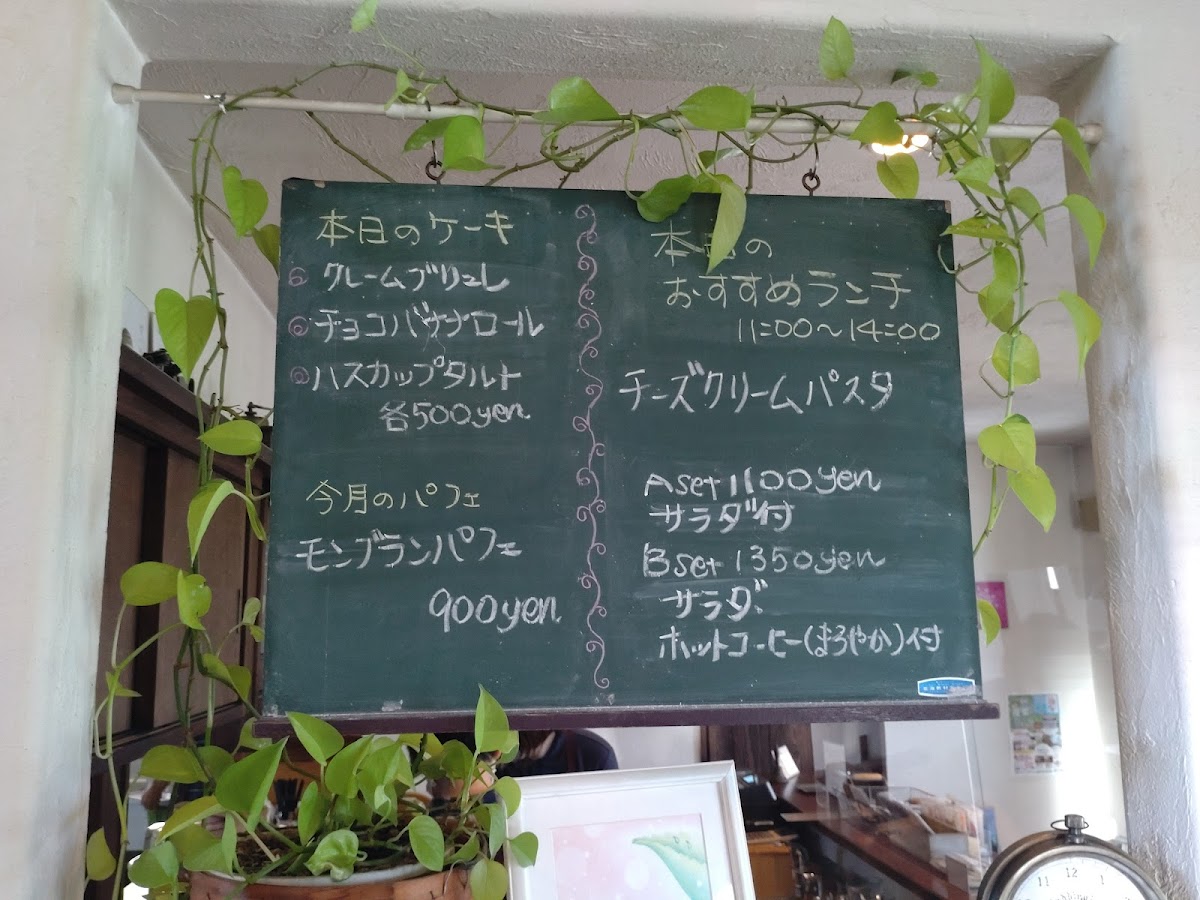 本日のケーキ
クレームブリュレ
チョコバナナロール
ハスカップタルト
各500yen
今月のパフェ
モンブランパフェ
900yen
本日の
おすすめランチ
11:00～14:00
チーズクリームパスタ
Aset 1100yen
サラダ付
Bset 1350yen
サラダ
ホットコーヒー(まろやか)付
11 12 1